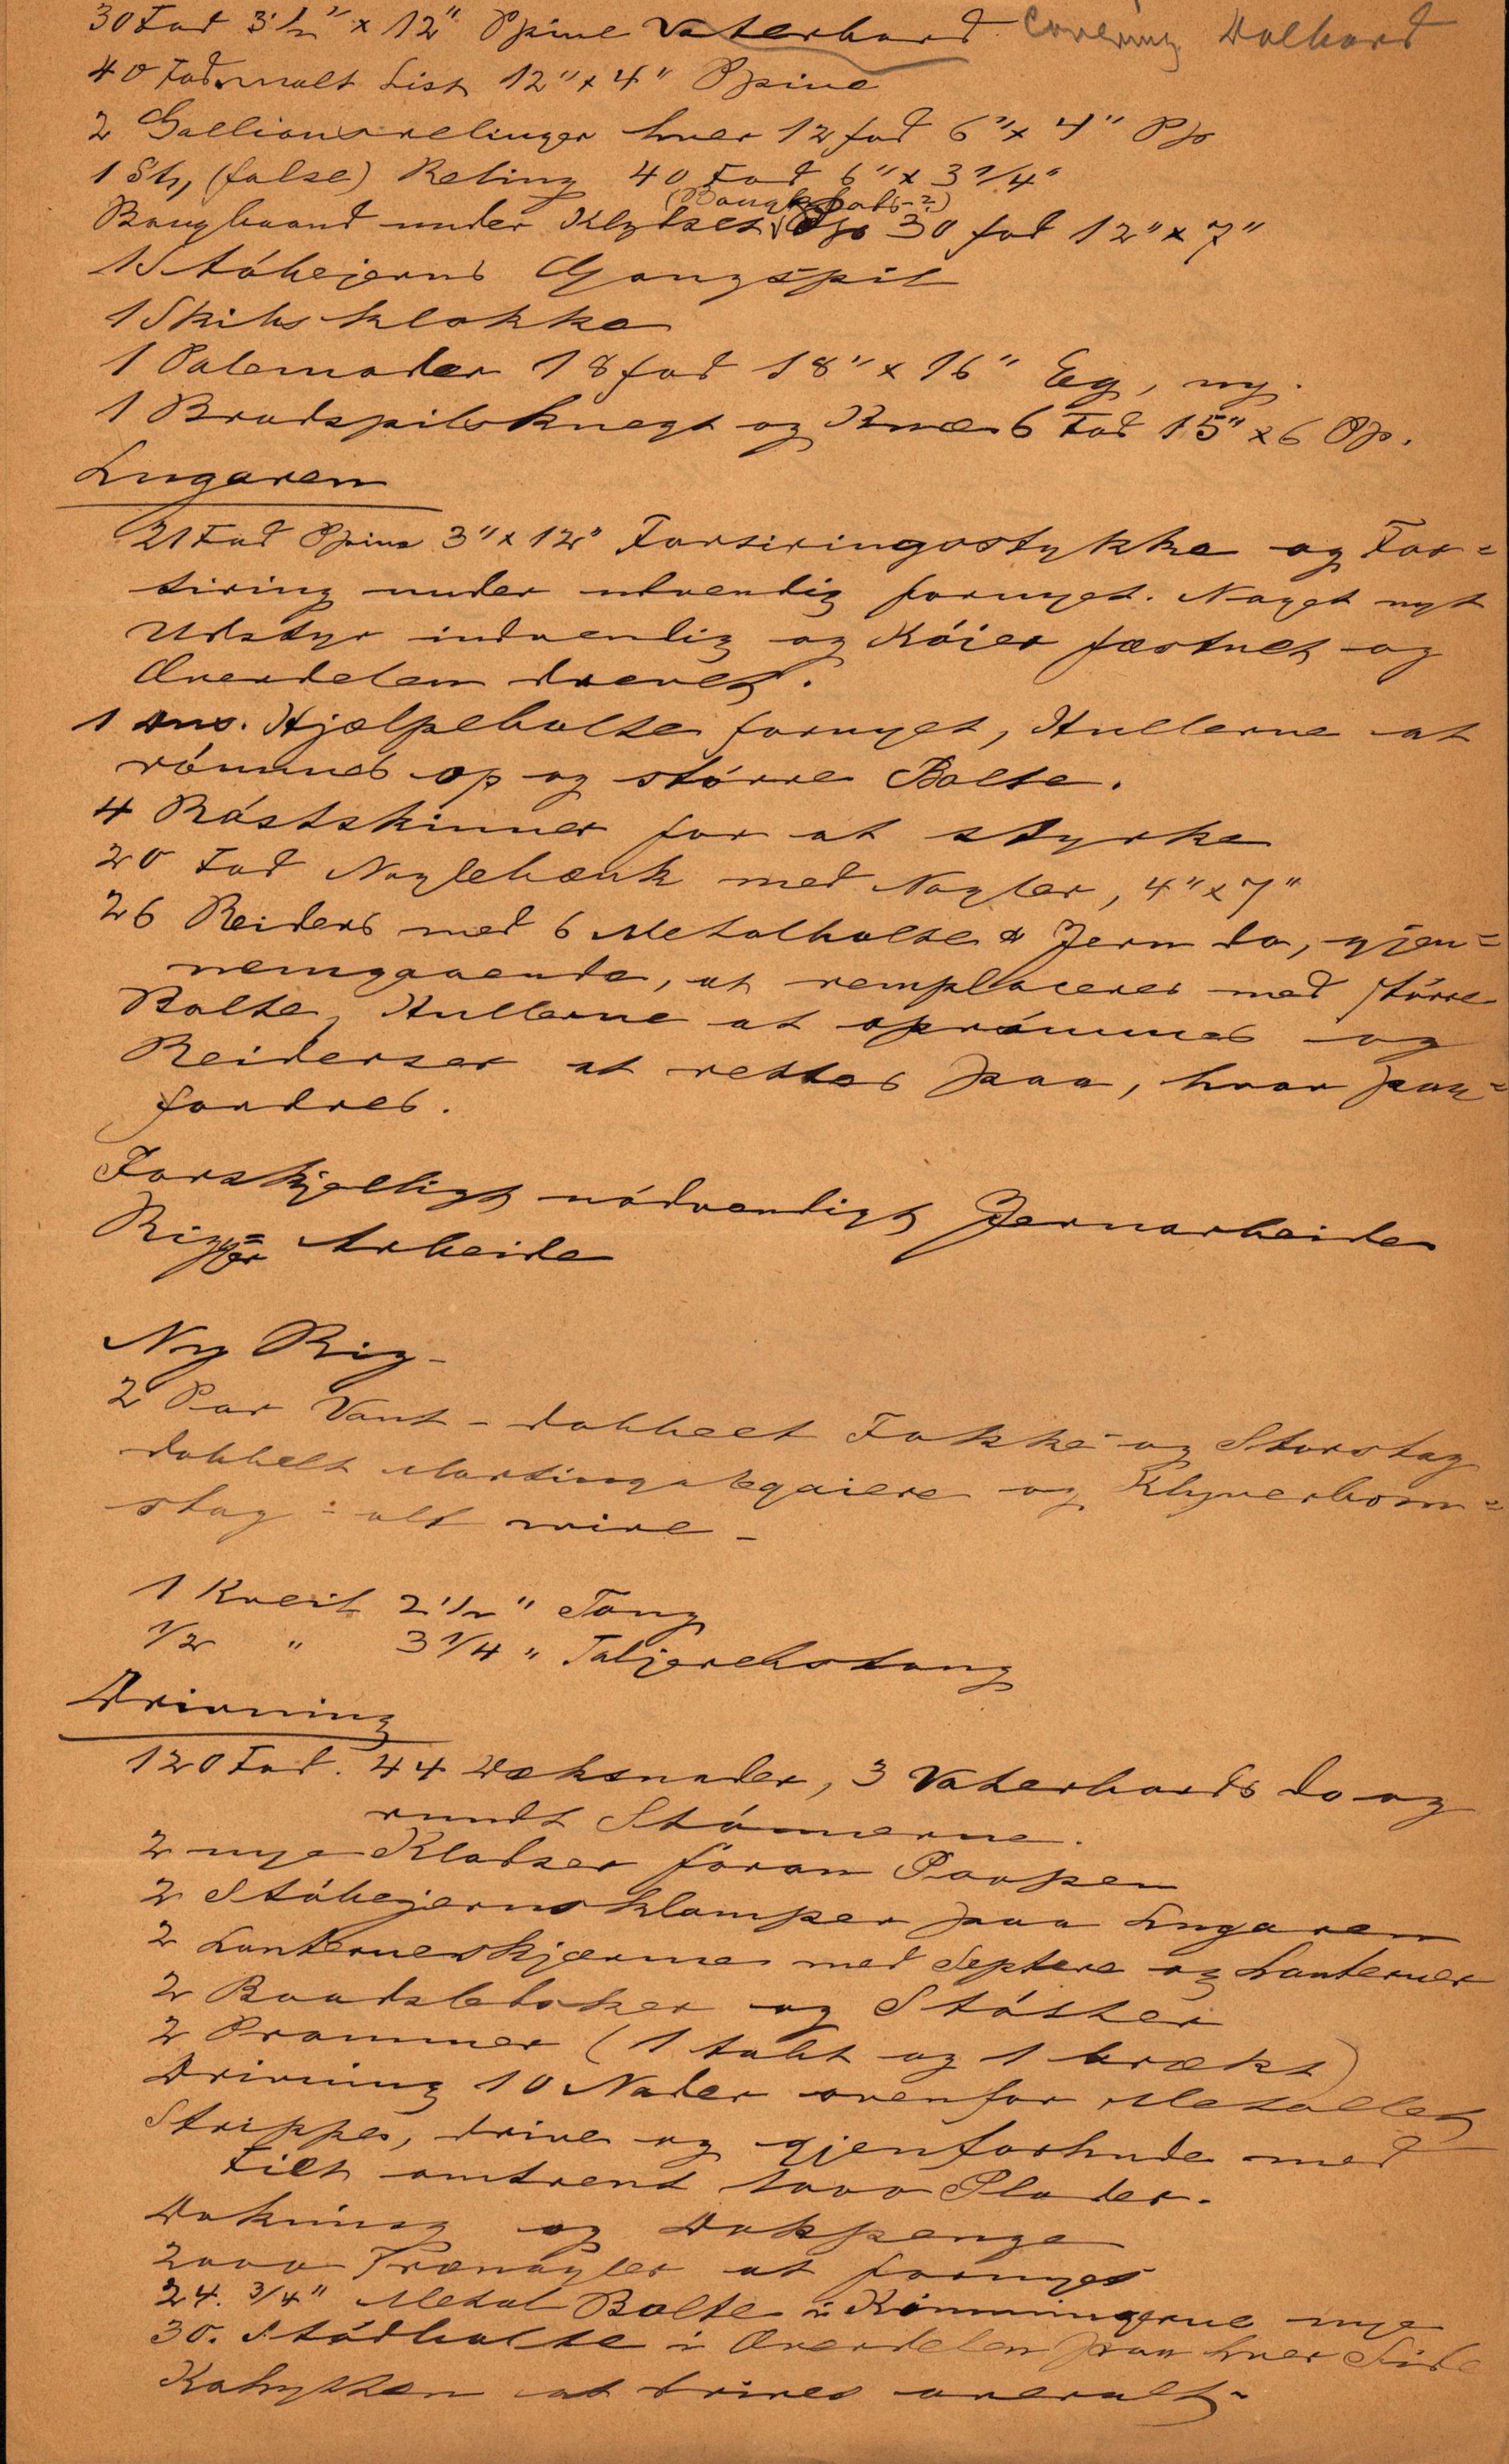 30 Fod 3 1/2" x 12" Ppine Vaterbord Covering Dolbord
40 Fod smalt List 12" x 4" Ppine
2 Gallionsrelinger hver 12 fod 6" x 4" Pp
1 St, (false) Reling 40 Fod 6" x 3 1/4"
Bougbaand under Klydset 30 fod 12" x 7"
1 Stöbejerns Gangspil
1 Skibsklokke
1 Palemader 18 fod 18" x 16" Eg, ny.
1 Bradspilsknegt og Knæ 6 Fod 15" x 6 Pp.
Lugaren
21 Fod Ppine 3" x 12" Forsiringsstykke og For=
siring under udvendig fornyet. Noget nyt
Udstyr indvendig og Köier fæstnet og
Overdelen drevet.
1 Dus. Hjælpebolte fornyet, Hullerne at
römmes op og större Bolte.
4 Röstskinner for at styrke
20 Fod Naglebænk med Nagler, 4" x 7"
26 Reiders med 6 Metalbolte & Jern do, gjen=
nemgaaende, at remplaceres med större
Bolte, Hullerne at oprömmes og
Reiderser at rettes paa, hvor paa=
fordres.
Forskjelligt nödvendigt Jernarbeide
Rigger= Arbeide
Ny Rig -
2 Par Vant - dobbelt Fokke- og Storstag
dobbelt Martingalegaiere og Klyverbom=
stag - alt wire -
1 Kveil 2 1/2" Toug
1/2 " 3 1/4 " Taljerebstoug
Drivning
120 Fod. 44 Dæksnader, 3 Vaterbords do og
rundt Stömmerne.
2 nye Klodser foran Poopen
2 Stöbejernsklamper paa Lugaren
2 Lanterneskjærme med Septere og Lanterner
2 Baadsletsker og Stötter
2 Prammer (1 tabt og 1 brækt)
Drivning 10 Nader ovenfor Metallet
Strippe, drive og gjenforhude med
Filt omtrent 1000 Plader.
Dokning og Dokpenge
2000 Trænagler at fornyes
24. 3/4" Metal Bolte i Kimmingerne nye
30. Stödbolte i Overdelen paa hver Side
Kahytten at drives overalt -